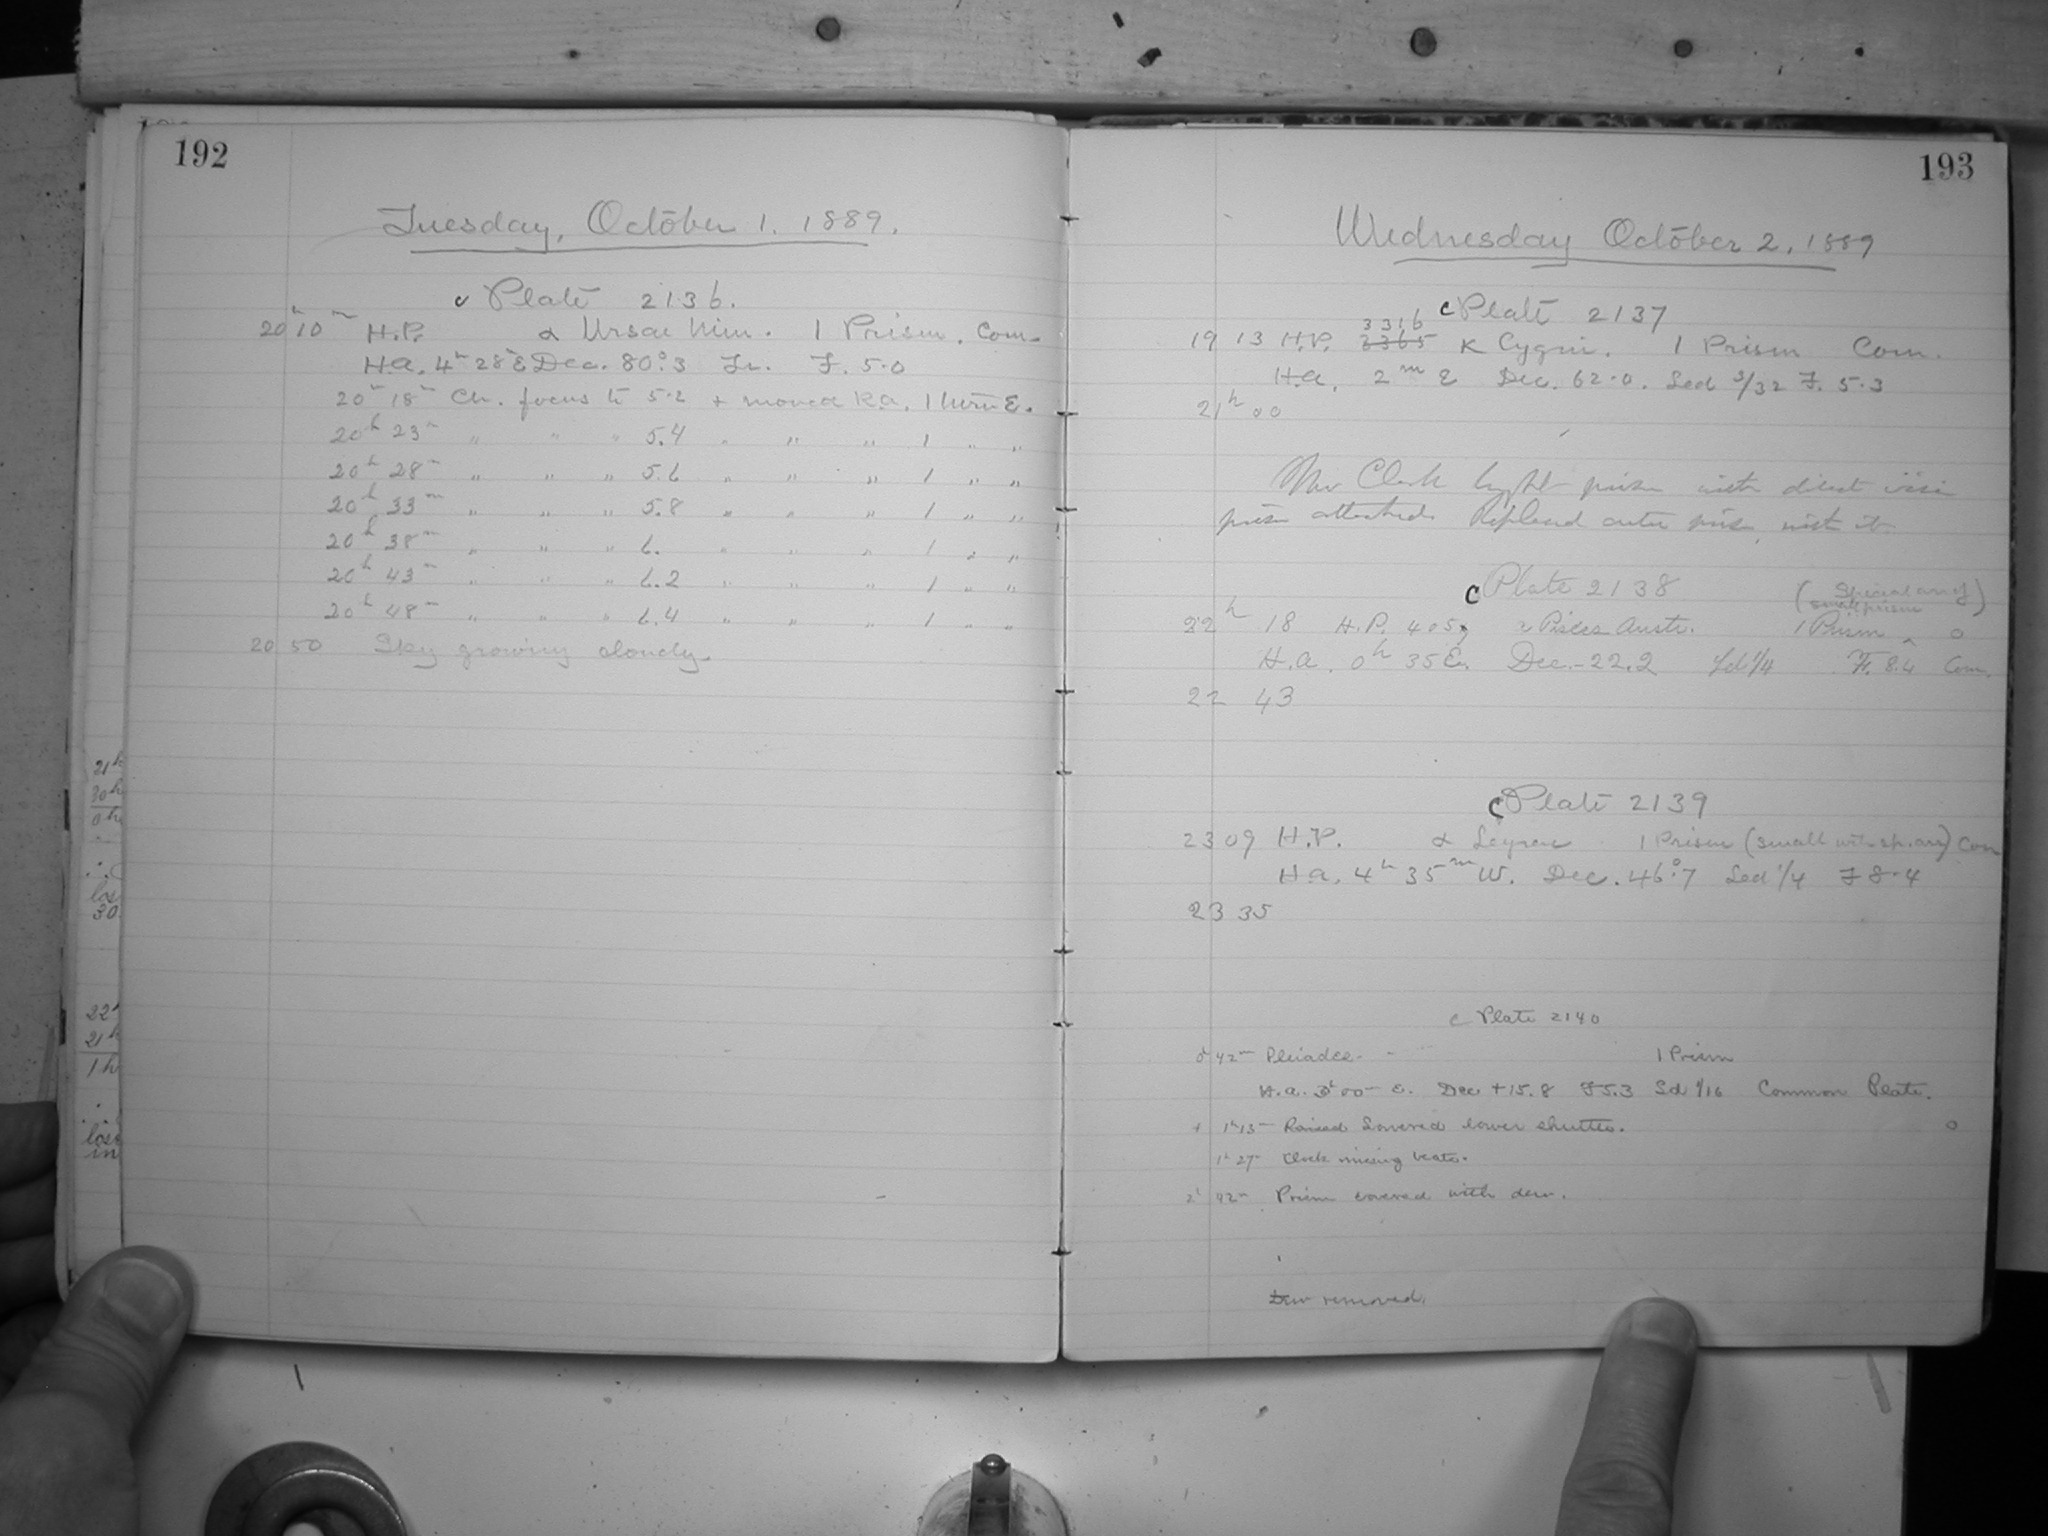 192
Tuesday, October 1. 1889.
c Plate 2136.
20h 10m H.P. α Ursae Min. 1 Prism. Com.
H.a. 4h 28m E Dec. 80°.3 F. 5.0
20h 18m Ch. focus to 5.2 + moved R.a. 1 turn E.
20h 23m " " " 5.4 " " " 1 " "
20h 28m " " " 5.6 " " " 1 " "
20h 33m " " " 5.8 " " " 1 " "
20h 38m " " " 6. " " " 1 " "
20h 43m " " " 6.2 " " " 1 " "
20h 48m " " " 6.4 " " " 1 " "
20 50 Sky growing cloudy.
21h
30h
0h
los
30
22h
21h
1h
los
in
193
Wednesday October 2, 1889
c Plate 2137
3316
19 13 H.P. 3365 K Cygni. 1 Prism Com.
H.a. 2m E Dec. 62.0. Led 3/32 F. 5.3
21h 00
Mr Clark prism with direct
prism attached. Replaced outer prism with it
c Plate 2138 (Special arr of)
small prism
22h 18 H.P. 405 Pisces Austr. 1 Prism ^ o
H.a. 0h 35 E. Dec. -22.2 Led 1/4 F. 8.4 Com.
22 43
c Plate 2139
23 09 H.P. α Leyrae 1 Prism (small with sp. arr) Com
H.a. 4h 35m W. Dec. 46°.7 Led 1/4 F 8.4
23 35
c Plate 2140
0h 42m Pleiades - - 1 Prism
H.a. 3h 00m E. Dec +15.8 F5.3 Sd 1/16 Common Plate.
+ 1h 13m Raised Lowered lower shutter. o
1h 27m Clock missing beats.
2h 42m Prism covered with dew.
Dew removed.